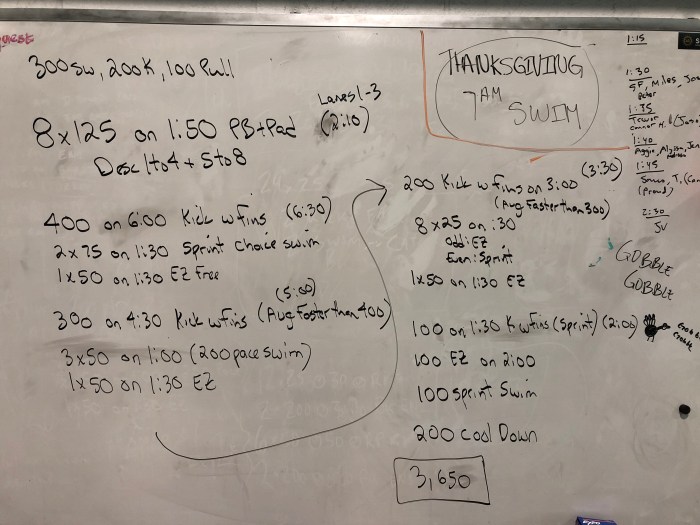 300 SW, 200K, 100 Pull
Lanes 1-3
8x125 on 1:50 PB+Pad (2:10)
Desc 1to4 + 5to8
400 on 6:00 Kick w fins (6:30)
2x75 on 1:30 Sprint Choice swim
1x50 on 1:30 EZ Free
(5:00)
300 on 4:30 Kick w Fins (Avg Faster than 400)
3x50 on 1:00 (200 pace swim)
1x50 on 1:30 EZ
THANKSGIVING
7AM SWIM
200 Kick w fins on 3:00 (3:30)
(Avg Faster than 300)
8x25 on :30
Odd: EZ
Even: Sprint
1x50 on 1:30 EZ
100 on 1:30 K w fins (Sprint) (2:00)
100 EZ on 2:00
100 Sprint Swim
200 Cool Down
3,650
1:15
1:30
SF, Miles,
Peter
1:35
1:40
1:45
(Proud)
2:30
JV
GOBBLE
GOBBLE